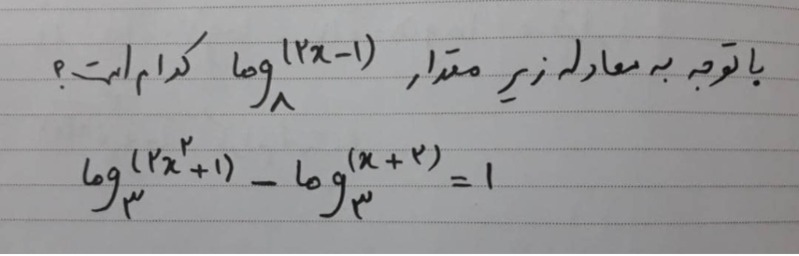 با توجه به معادله زیر مقدار log₈^(۲x-۱) کدام است؟
log₃^(۲x^۲+۱) - log₃^(x+۲) = ۱